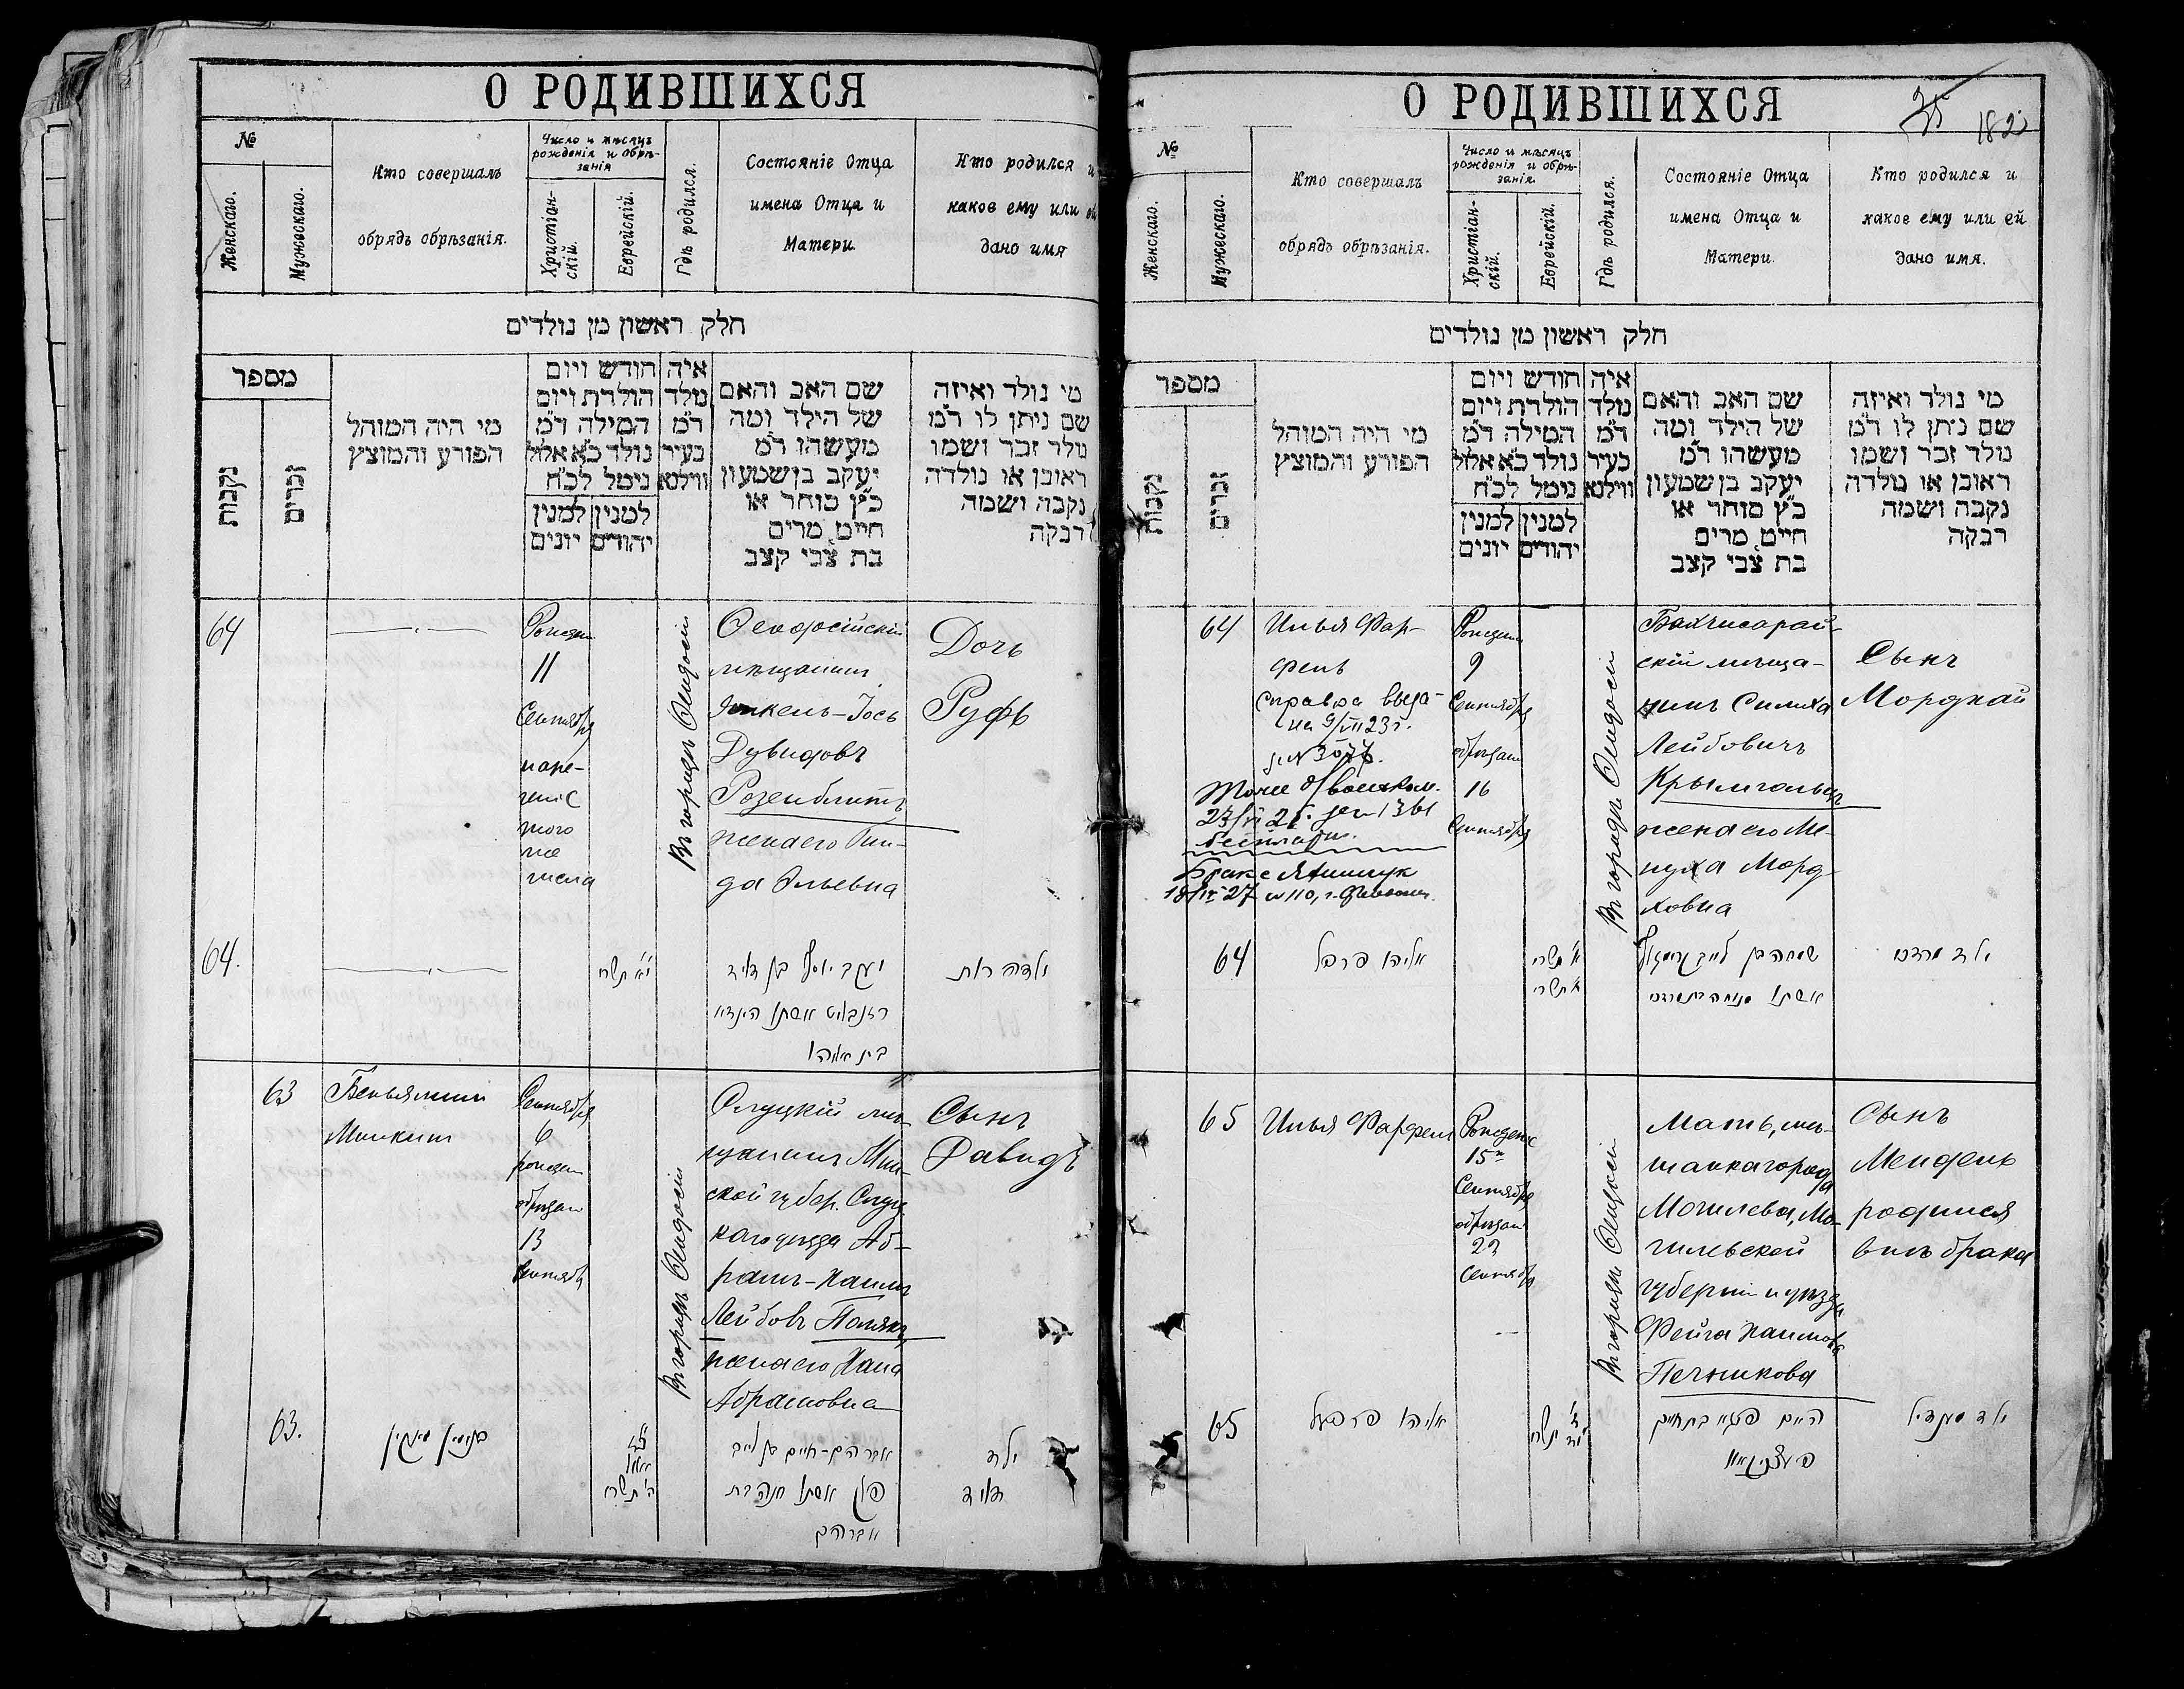 О РОДИВШИХСЯ
№
Женскаго.
Мужескаго.
Кто совершалъ
обрядъ обрѣзанія.
Число и мѣсяцъ
рожденія и обрѣ-
занія
Христіан-
скій.
Еврейскій.
Гдѣ родился.
Состояніе Отца
имена Отца и
Матери.
Кто родился и
какое ему или ей
дано имя
חלק ראשון מן נולדים
מספר
נקבות
זכרים
מי היה המוהל
הפורע והמוצץ
חודש ויום
הולדת ויום
המילה ד״מ
נולד כ״א אלול
נימל לכ״ח
למנין למנין
יהודים יונים
איה
נולד
ד״מ
בעיר
ווילנא
שם האב והאם
של הילד ומה
מעשהו ד״מ
יעקב בן שמעון
כ״ץ סוחר או
חייט מרים
בת צבי קצב
מי נולד ואיזה
שם ניתן לו ד״מ
נולד זכר ושמו
ראובן או נולדה
נקבה ושמה
רבקה
64
11
Сентября
наре-
того
же
числа
Въ городѣ Ѳеодосіи
Ѳеодосійскій
мѣщанинъ
Янкель-Іось
Дувидовъ
Розенблитъ
жена его Гин-
да Эльевна
Дочь
Руфь
64.
י״א תשרי
יעקב יוסף בן דויד
רוזנבליט אשתו הינדא
בת אליהו
ילדה רות
63
Беньяминъ
Минкинъ
Сентября
6
рожден
обрѣзан
13
Сентября
Въ городѣ Ѳеодосіи
Слуцкій мѣ-
щанинъ Мин-
ской губер. Слуц.
каго уѣзда Аб-
рамъ-Хаимъ
Лейбовъ Полякъ
жена его Хана
Абрамовна
Сынъ
Давидъ
63.
בנימין מינקין
ה׳ תשרי
אברהם-חיים בן לייב
פולק אשתו חנה בת
אברהם
ילד
דויד
О РОДИВШИХСЯ
35
182
№
Женскаго.
Мужескаго.
Кто совершалъ
обрядъ обрѣзанія.
Число и мѣсяцъ
рожденія и обрѣ-
занія.
Христіан-
скій.
Еврейскій.
Гдѣ родился.
Состояніе Отца
имена Отца и
Матери.
Кто родился и
какое ему или ей
дано имя.
חלק ראשון מן נולדים
מספר
נקבות
זכרים
מי היה המוהל
הפורע והמוצץ
חודש ויום
הולדת ויום
המילה ד״מ
נולד כ״א אלול
נימל לכ״ח
למנין למנין
יהודים יונים
איה
נולד
ד״מ
בעיר
ווילנא
שם האב והאם
של הילד ומה
מעשהו ד״מ
יעקב בן שמעון
כ״ץ סוחר או
חייט מרים
בת צבי קצב
מי נולד ואיזה
שם ניתן לו ד״מ
נולד זכר ושמו
ראובן או נולדה
נקבה ושמה
רבקה
64
Илья Фар-
фель
Справка выда-
на 9/VII 23 г.
за № 3077.
Тоже
бесплатн.
Брак с
18/IX 27 № 110, г.
9
Сентября
обрѣзан
16
Сентября
Въ городѣ Ѳеодосіи
Бахчисарай-
скій мѣща-
нинъ Симха
Лейбовичъ
Крымгольцъ
жена его Ме-
нуха Морд-
ховна
Сынъ
Мордхай
64
אליהו פרפל
תשרי
תשרי
שמחה בן לייב קרימגולץ
אשתו מנוחה בת מרדכי
ילד מרדכי
65
Илья Фарфель
15
Сентября
обрѣзан
22
Сентября
Въ городѣ Ѳеодосіи
Мать, мѣ-
щанка города
Могилева, Мо-
гилевской
губерніи и уѣзда
Фейга Хаимова
Печникова
Сынъ
Мендель
родился
внѣ брака
65
אליהו פרפעל
תשרי
האם פייגא בת חיים
פעטשניקאווא
ילד מענדיל